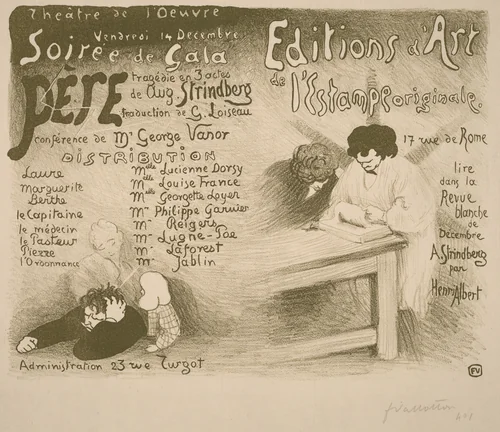 Théâtre de l'Oeuvre
Vendredi 14 Decembre
Soirée de Gala
PÈRE
tragédie en 3 actes
de Aug. Strindberg
traduction de G. Loiseau
conférence de Mr George Vanor
DISTRIBUTION
Laure Melle Lucienne Dorsy
Marguerite Melle Louise France
Berthe Melle Georgette Loyer
le Capitaine Mr Philippe Garnier
le médecin Mr Reigers
le Pasteur Mr Lugné-Poe
Pierre Mr Laforest
l'Ordonnance Mr Jablin
Administration 23 rue Turgot
Editions d'Art
de l'Estampe originale.
17 rue de Rome
lire
dans la
Revue
blanche
de
Décembre
A Strindberg
par
Henri Albert
FV
f Vallotton